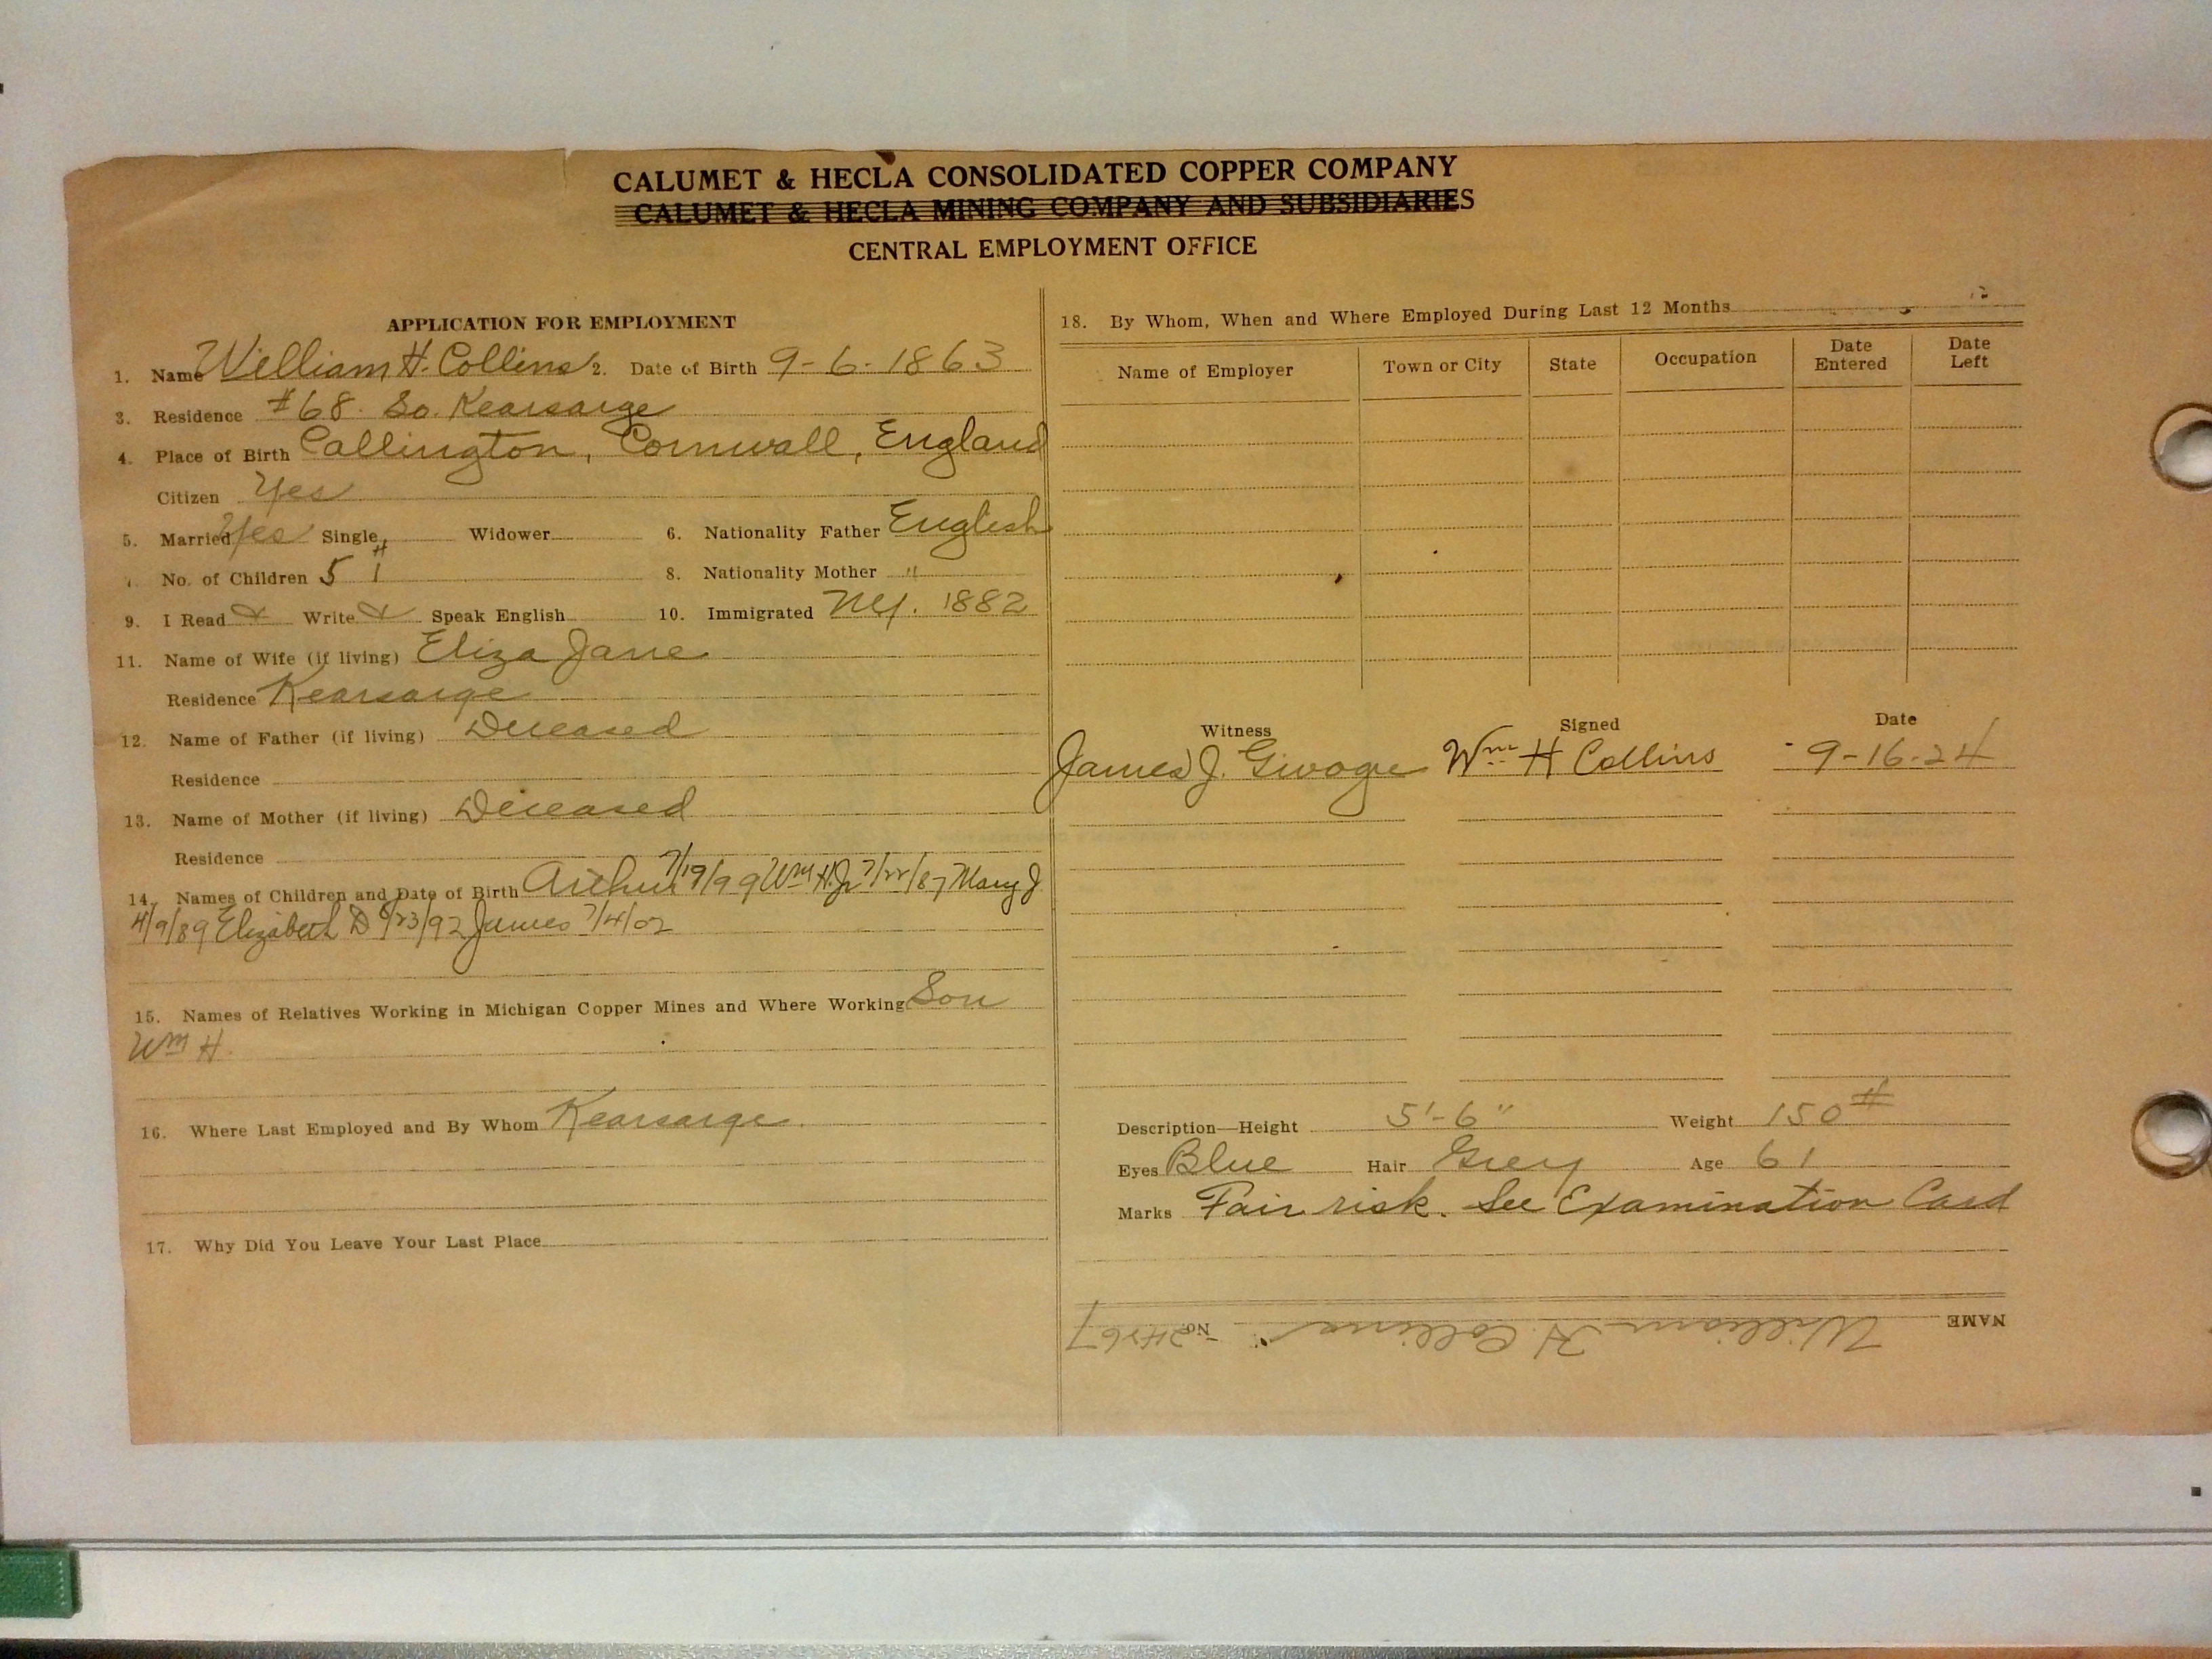 CALUMET & HECLA CONSOLIDATED COPPER COMPANY
CALUMET & HECLA MINING COMPANY AND SUBSIDIARIES
CENTRAL EMPLOYMENT OFFICE
APPLICATION FOR EMPLOYMENT
1. Name William H. Collins 2. Date of Birth 9-6-1863
3. Residence #68 So. Kearsarge
4. Place of Birth Callington, Cornwall, England
Citizen Yes
5. Married Yes Single Widower 6. Nationality Father English
No. of Children 5 8. Nationality Mother "
9. I Read Write Speak English 10. Immigrated NY. 1882
11. Name of Wife (if living) Eliza Jane
Residence Kearsarge
12. Name of Father (if living) Deceased
Residence
13. Name of Mother (if living) Deceased
Residence
14. Names of Children and Date of Birth Arthur 7/19/99 Wm H. Jr 7/22/87 Mary J
4/9/89 Elizabeth D /23/92 James 7/4/02
15. Names of Relatives Working in Michigan Copper Mines and Where Working Son
Wm H.
16. Where Last Employed and By Whom Kearsarge.
17. Why Did You Leave Your Last Place
18. By Whom, When and Where Employed During Last 12 Months
Name of Employer Town or City State Occupation Date Entered Date Left
Witness Signed Date
James J. Wm H Collins 9-16-24
Description—Height 5'-6" Weight 150#
Eyes Blue Hair Grey Age 61
Marks Fair risk. See Examination Card
NAME William H. Collins No.